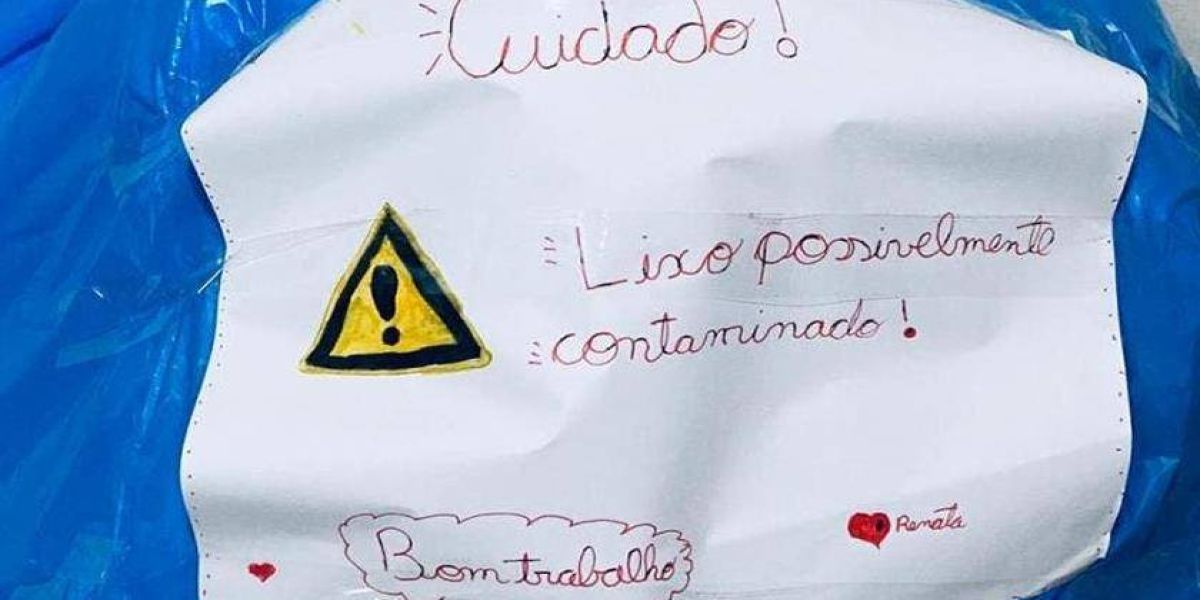 Cuidado!
Lixo possivelmente
contaminado!
Renata
Bom trabalho